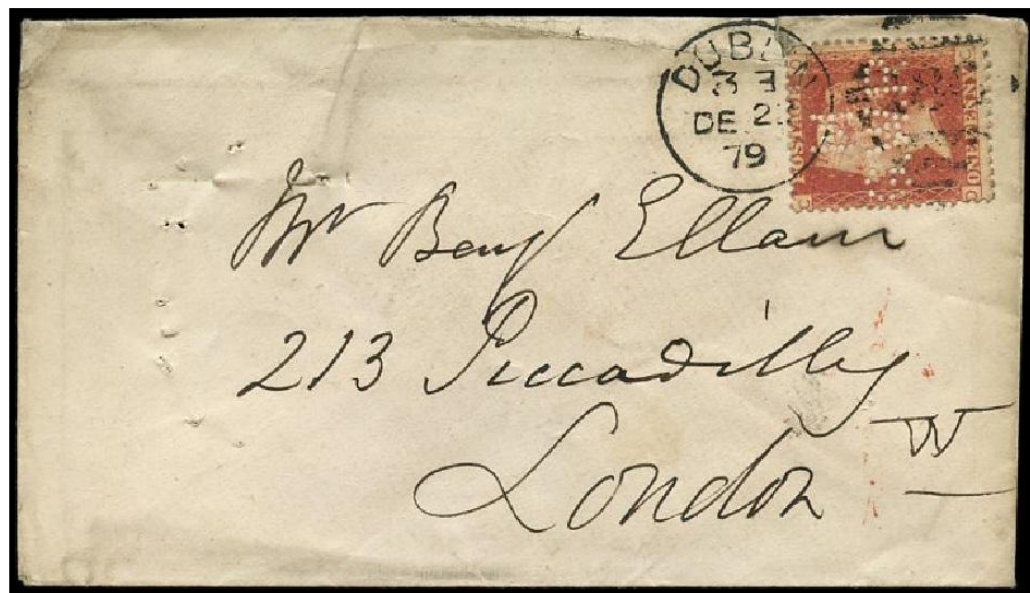 DUBLIN
3 E
DE 2
79
POSTAGE
ONE PENNY
Mr Benj Ellam
213 Piccadilly
London W